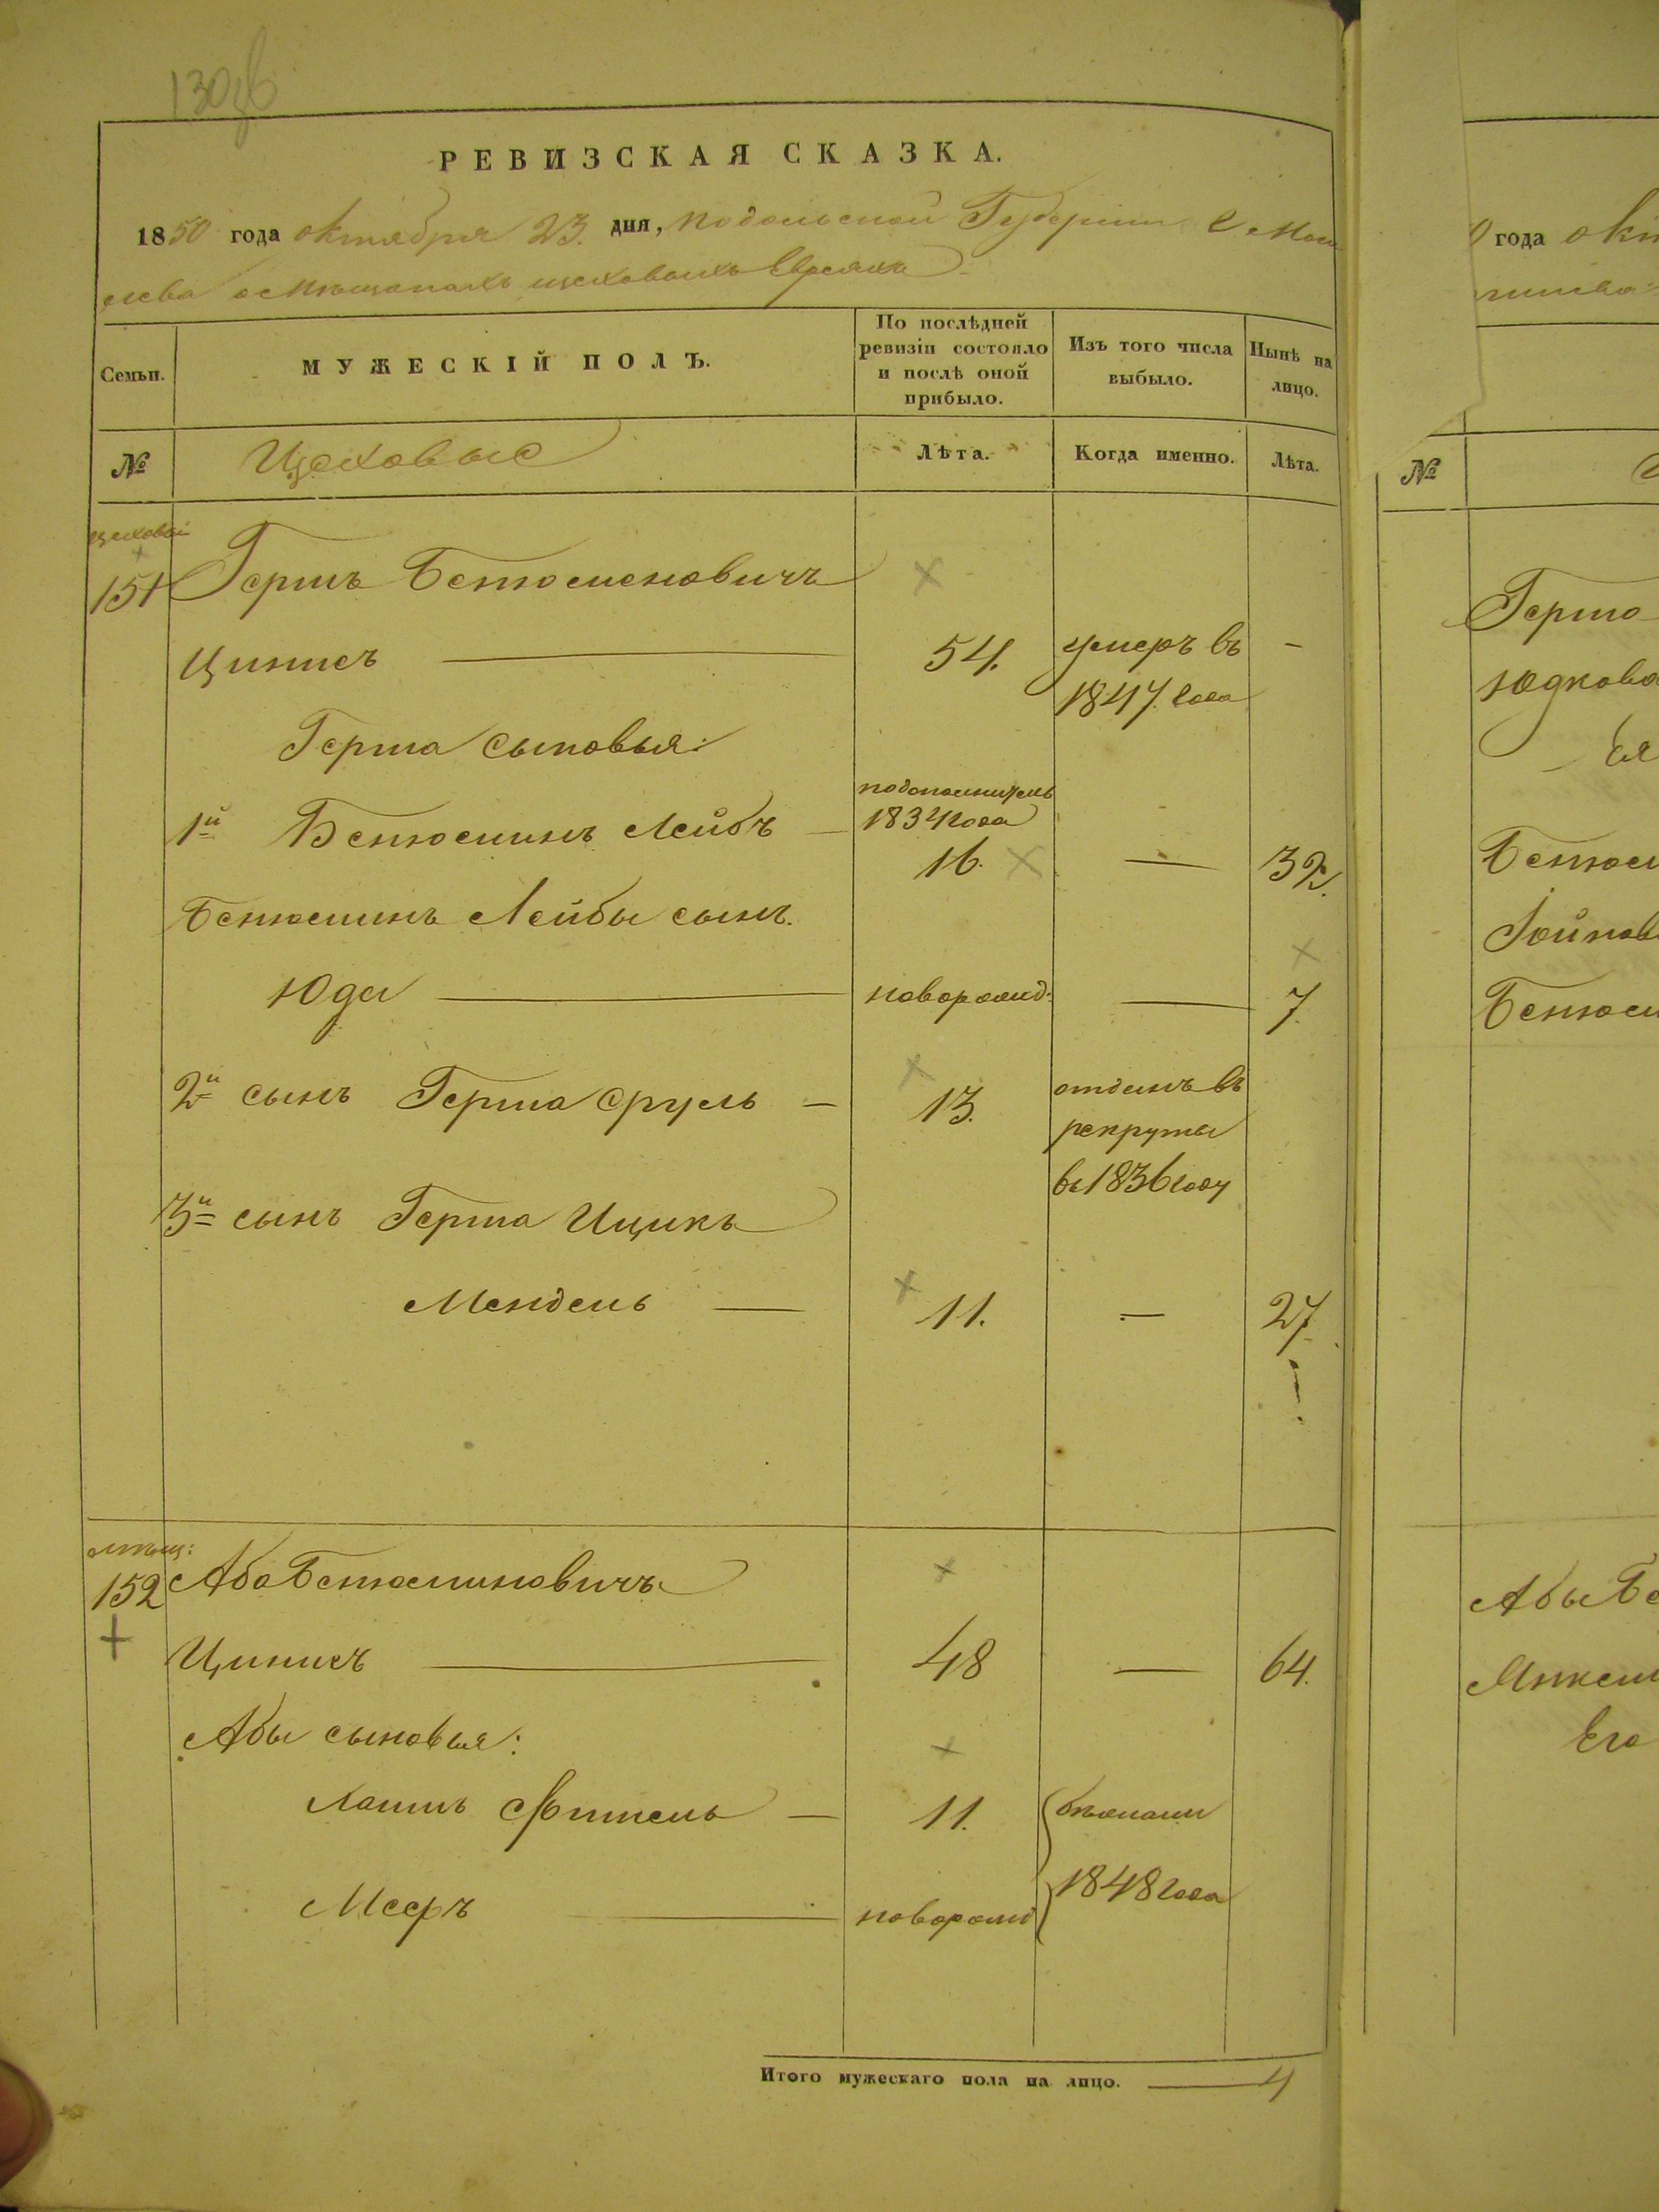 РЕВИЗСКАЯ СКАЗКА.
1850 года октября 23. дня, Подольской Губернии г. Моги
лева о Мещанахъ цеховыхъ Евреяхъ
Семьи. МУЖЕСКІЙ ПОЛЪ. По послѣдней ревизіи состояло и послѣ оной прибыло. Изъ того числа выбыло. Нынѣ на лицо.
№ Цеховые Лѣта. Когда именно. Лѣта.
цеховой
151 Гершъ Беньоменовичъ
Цинисъ 54. умеръ въ —
1847 года
Герша сыновья:
1й Беньоминъ Лейбъ — 1834 года
16. — 32.
Беньоминъ Лейбы сынъ.
Юда новорожд: — 7.
2й сынъ Герша Сруль — 13. отданъ въ
рекруты
въ 1836 году
3й сынъ Герша Ицикъ
Мендель — 11. — 27.
мѣщ:
152 Аба Беньоминовичъ
Цинисъ 48 — 64.
Абы сыновья:
Хаимъ Фишель — 11. бѣжали
Мееръ новорожд 1848 года
Итого мужескаго пола на лицо. 4
0 года окт
№
Герш
Юдков
Беньом
Іойнов
Беньом
Абы Бе
Его